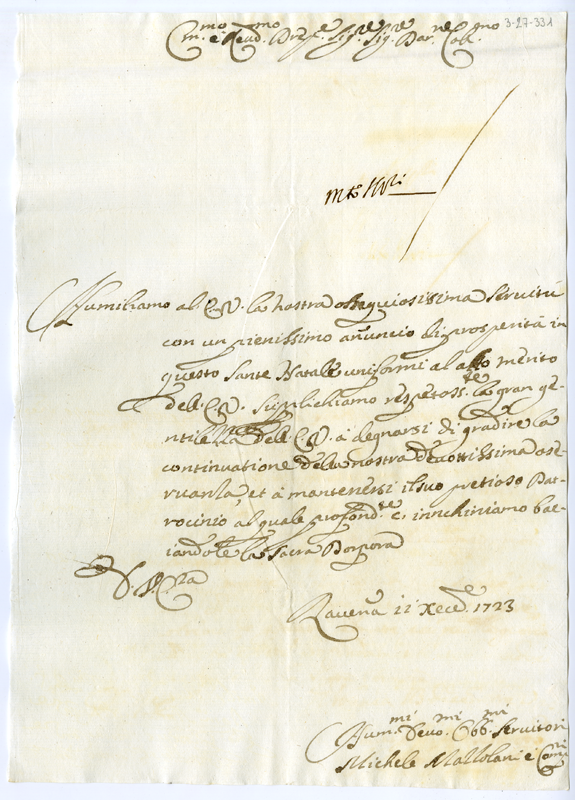 3-27-331
Em.mo e Reud.mo Prpe Sig.re Sig.re Par.ne Col.mo
Humiliamo al E.V. la nostra ossequiosissima Seruitù
con un pienissimo anuncio di prosperità in
questo Sante Natale uniformi al alto merito
dele E.V. suplichiamo respetoss.te la gran ge-
ntilella dele E.V. à degnarsi di gradire la
continuatione dela nostra deuotissima ose-
ruanla, et à mantenersi il suo pretioso Pat-
rocinio al quale profond.te c, inchiniamo bac-
iandole la Sacra Porpora
D. V. E.za
Rauena 11 Xece.e 1723
Hum.mi Deuo.mi Obb.mi Seruitori
Michele Mallolani e